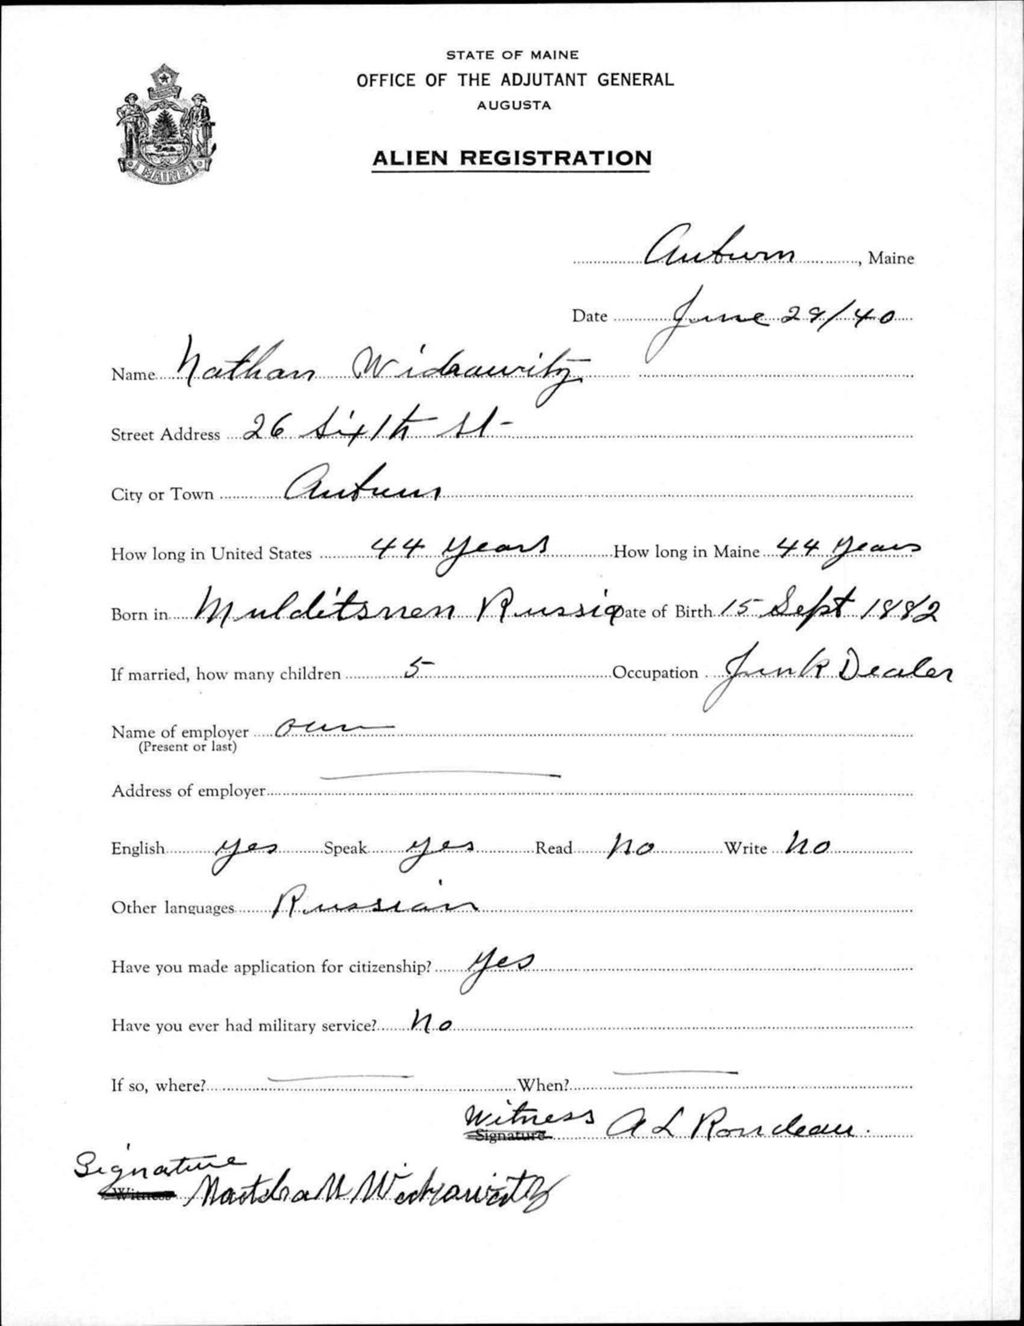 STATE OF MAINE
OFFICE OF THE ADJUTANT GENERAL
AUGUSTA
ALIEN REGISTRATION
MAINE
Auburn, Maine
Date June 29/40
Name Nathan Widrawitz
Street Address 26 Sixth St-
City or Town Auburn
How long in United States 44 years How long in Maine 44 years
Born in Russia Date of Birth 15 Sept 1882
If married, how many children 5 Occupation Junk Dealer
Name of employer own
(Present or last)
Address of employer
English yes Speak yes Read No Write No
Other languages Russian
Have you made application for citizenship? Yes
Have you ever had military service? No
If so, where? When?
Witness A L Rondeau.
Signature
Signature
Witness